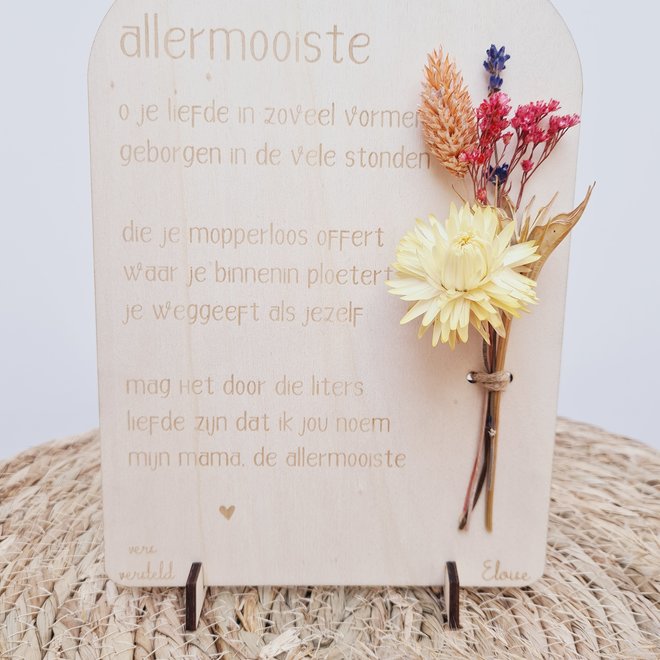 allermooiste
o je liefde in zoveel vormen
geborgen in de vele stonden
die je mopperloos offert
waar je binnenin ploetert
je weggeeft als jezelf
mag het door die liters
liefde zijn dat ik jou noem
mijn mama, de allermooiste
vers
versteld
Eloise